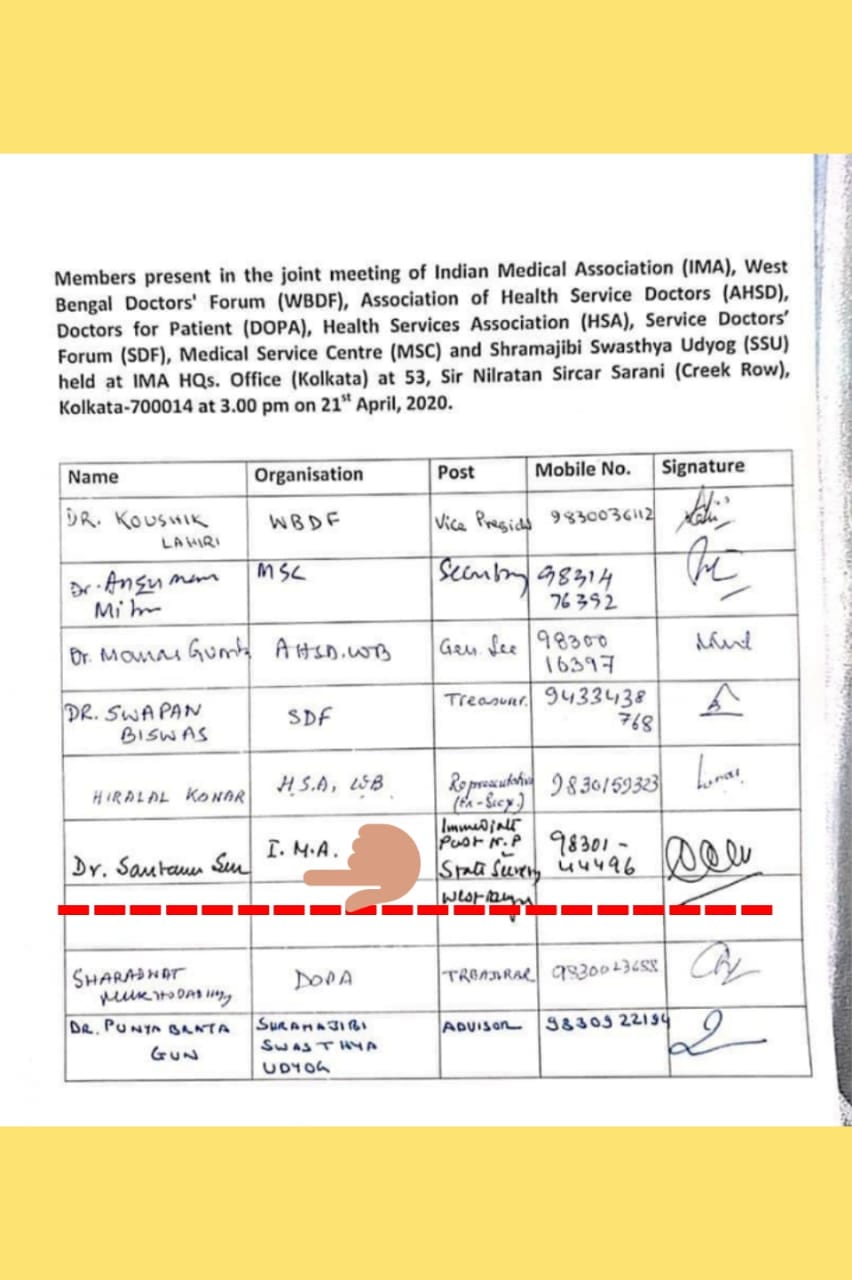 Members present in the joint meeting of Indian Medical Association (IMA), West
Bengal Doctors' Forum (WBDF), Association of Health Service Doctors (AHSD),
Doctors for Patient (DOPA), Health Services Association (HSA), Service Doctors'
Forum (SDF), Medical Service Centre (MSC) and Shramajibi Swasthya Udyog (SSU)
held at IMA HQs. Office (Kolkata) at 53, Sir Nilratan Sircar Sarani (Creek Row),
Kolkata-700014 at 3.00 pm on 21st April, 2020.
Name Organisation Post Mobile No. Signature
DR. KOUSHIK WBDF Vice 9830036112
LAHIRI
Dr. MSC 98314
76392
Dr. AHSD.WB Gen. Sec 98300
16397
DR. SWAPAN SDF Treasurer. 9433438
BISWAS 768
HIRALAL KONAR H.S.A, WB 9830159323
(Ex-Secy.)
Immediate
Dr. Santanu Sen I.M.A. Past N.P 98301-
State 44496
DOPA
DR. PUNYA BRATA ADVISOR 9830922194
GUN SWASTHYA
UDYOG